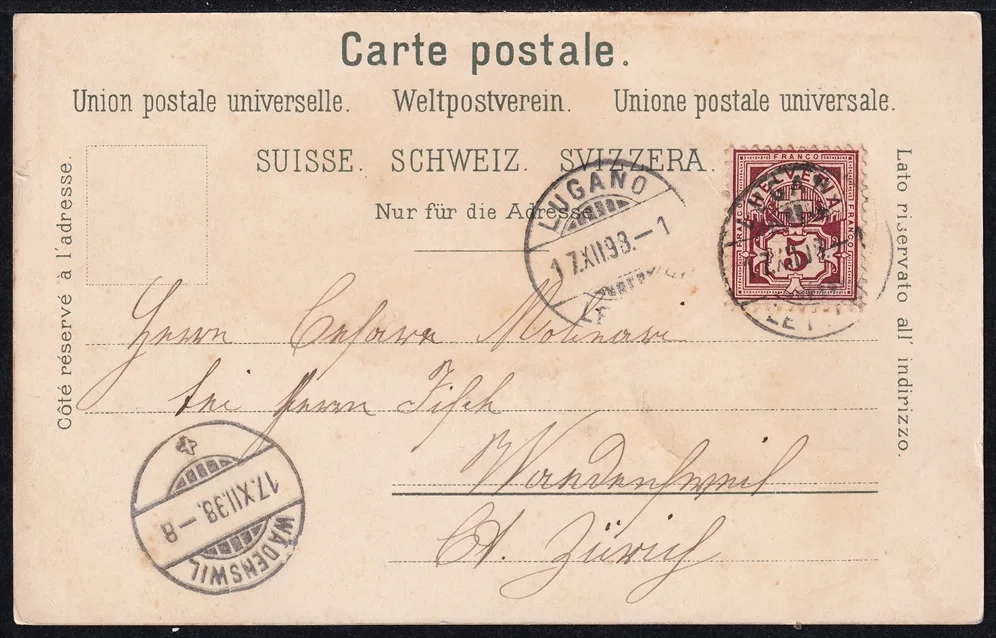 Carte postale.
Union postale universelle. Weltpostverein. Unione postale universale.
SUISSE. SCHWEIZ. SVIZZERA.
Nur für die Adresse.
Côté réservé à l'adresse.
Lato riservato all' indirizzo.
FRANCO
HELVETIA
FRANCO
FRANCO
5
LUGANO
17.XII.98.–1
LE
Herrn Cesare Molinari
bei Herrn Fisch
Wändensweil
Ct. Zürich
17.XII.98.–8
WÄDENSWIL